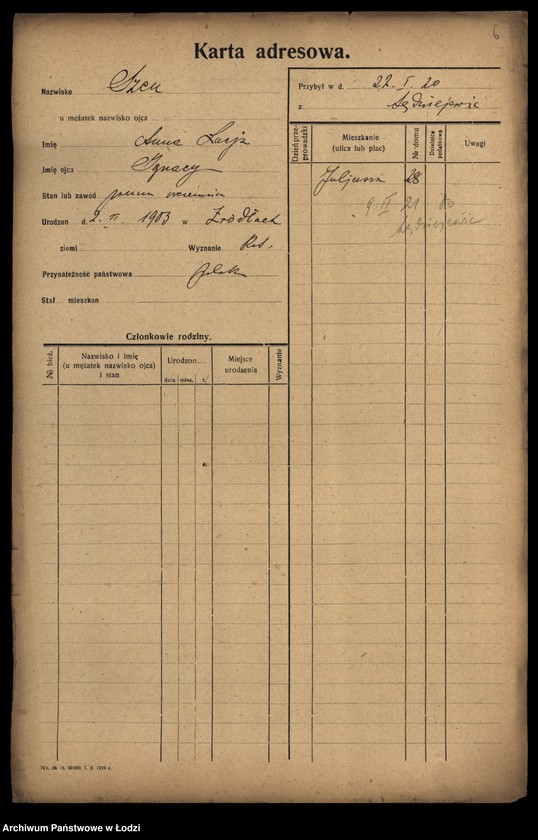 6
Karta adresowa.
Nazwisko Szen
u mężatek nazwisko ojca
Imię Anna Lucja
Imię ojca Ignacy
Stan lub zawód panna
Urodzon d. 2. II. 1903 w Źródłach
ziemi Wyznanie
Przynależność państwowa Polsk
Stał mieszkan
Przybył w d. 22. I. 20
z Sędziejowic
Dzień prze-prowadzki
Mieszkanie
(ulica lub plac)
№ domu
Dzielnica podatkowa
Uwagi
Juljusza 28
9. II 21 do
Sędziejowic
Członkowie rodziny.
№ bież.
Nazwisko i imię
(u mężatek nazwisko ojca)
i stan
Urodzon
dnia mies. r.
Miejsce
urodzenia
Wyznanie
Archiwum Państwowe w Łodzi